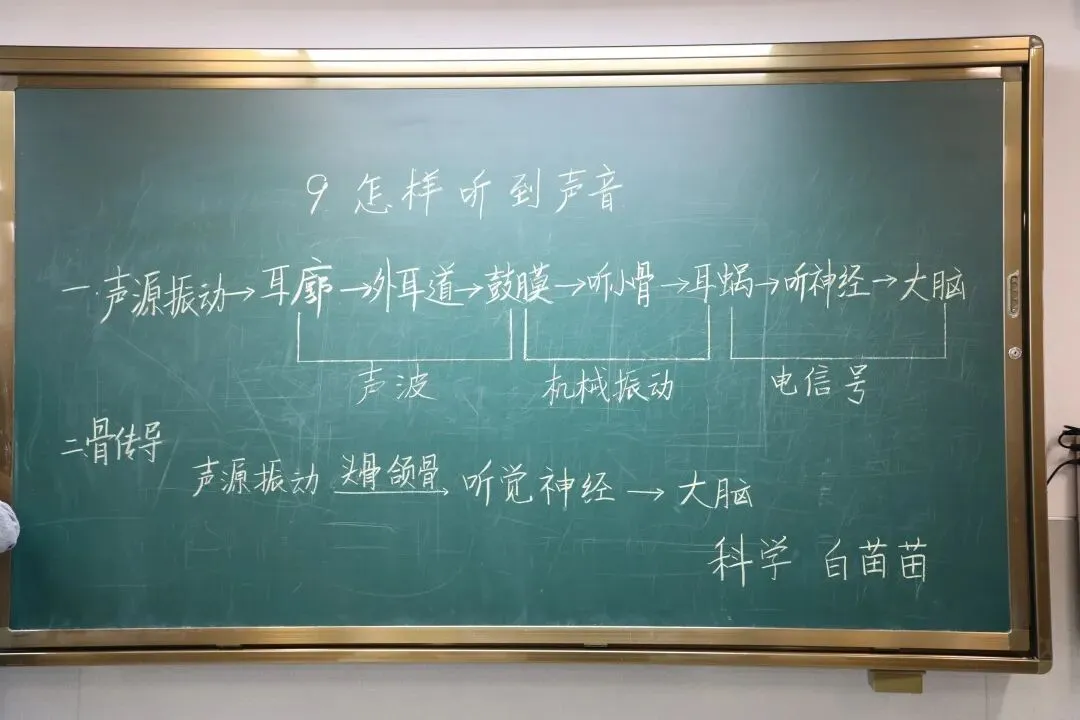 9 怎样听到声音
一.声源振动→耳廓→外耳道→鼓膜→听小骨→耳蜗→听神经→大脑
声波 机械振动 电信号
二.骨传导
声源振动 头骨颌骨→ 听觉神经→大脑
科学 白苗苗